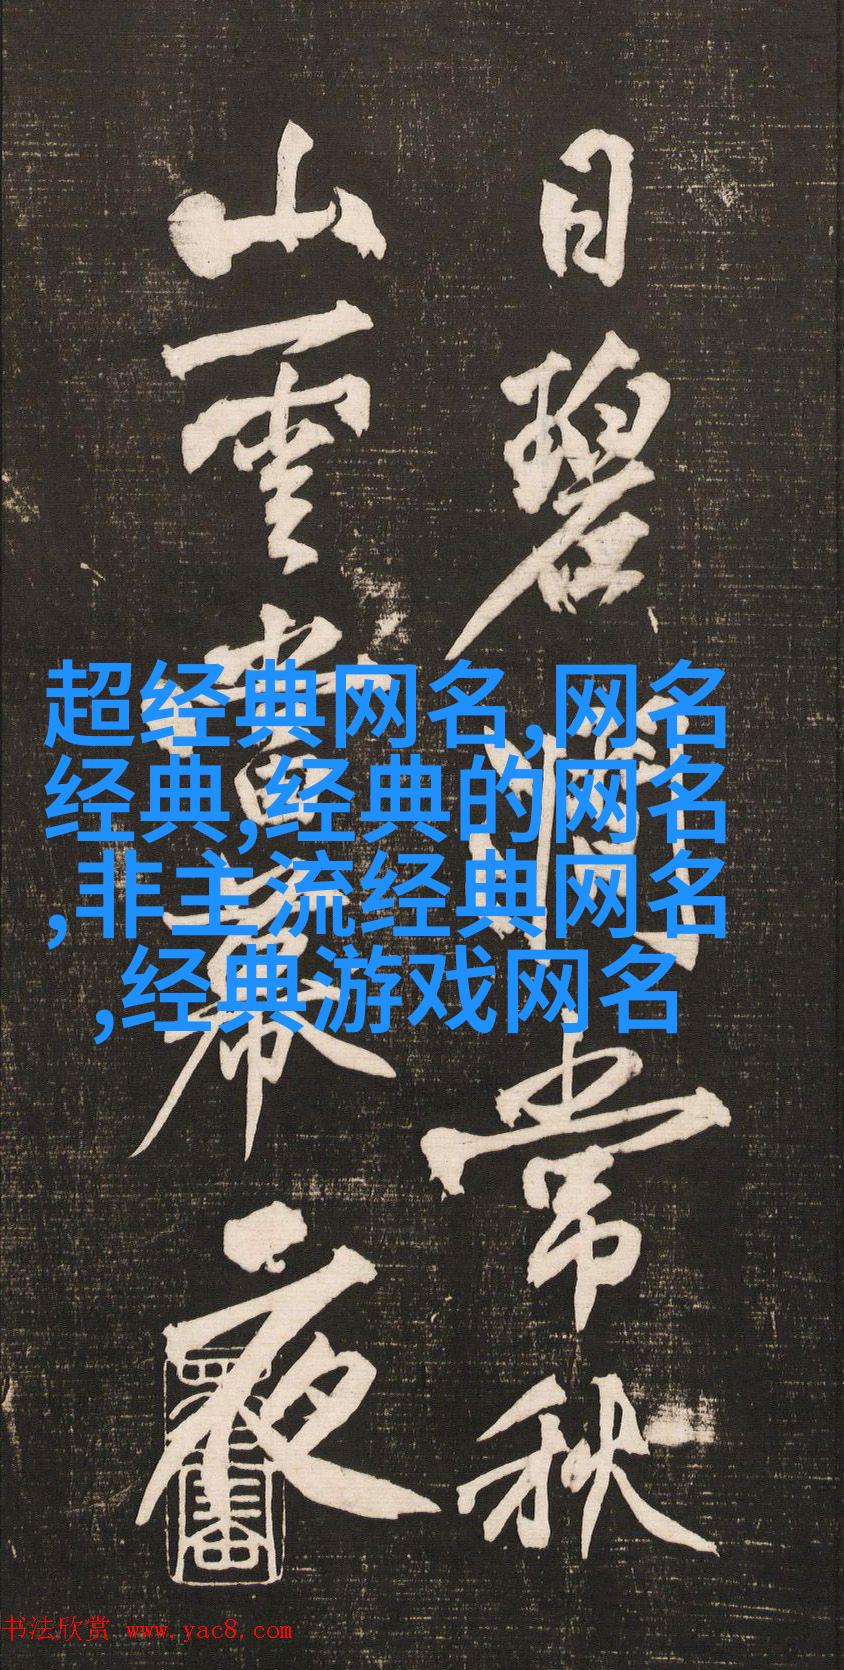 日碧澗常秋
山雲當幕夜
超经典网名,网名
经典,经典的网名
,非主流经典网名
,经典游戏网名
书法欣赏 www.yac8.com